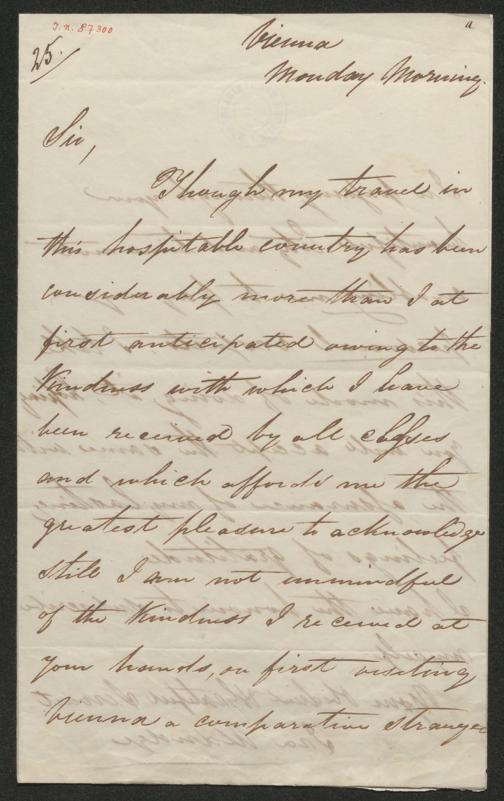 I.N. 87300
a
25.
Vienna
Monday Morning.
Sir,
Though my travel in
this hospitable country has been
considerably more than I at
first anticipated owing to the
Kindness with which I have
been received by all classes
and which affords me the
greatest pleasure to acknowledge
still I am not unmindful
of the Kindness I received at
your hands, on first visiting
Vienna a comparative stranger